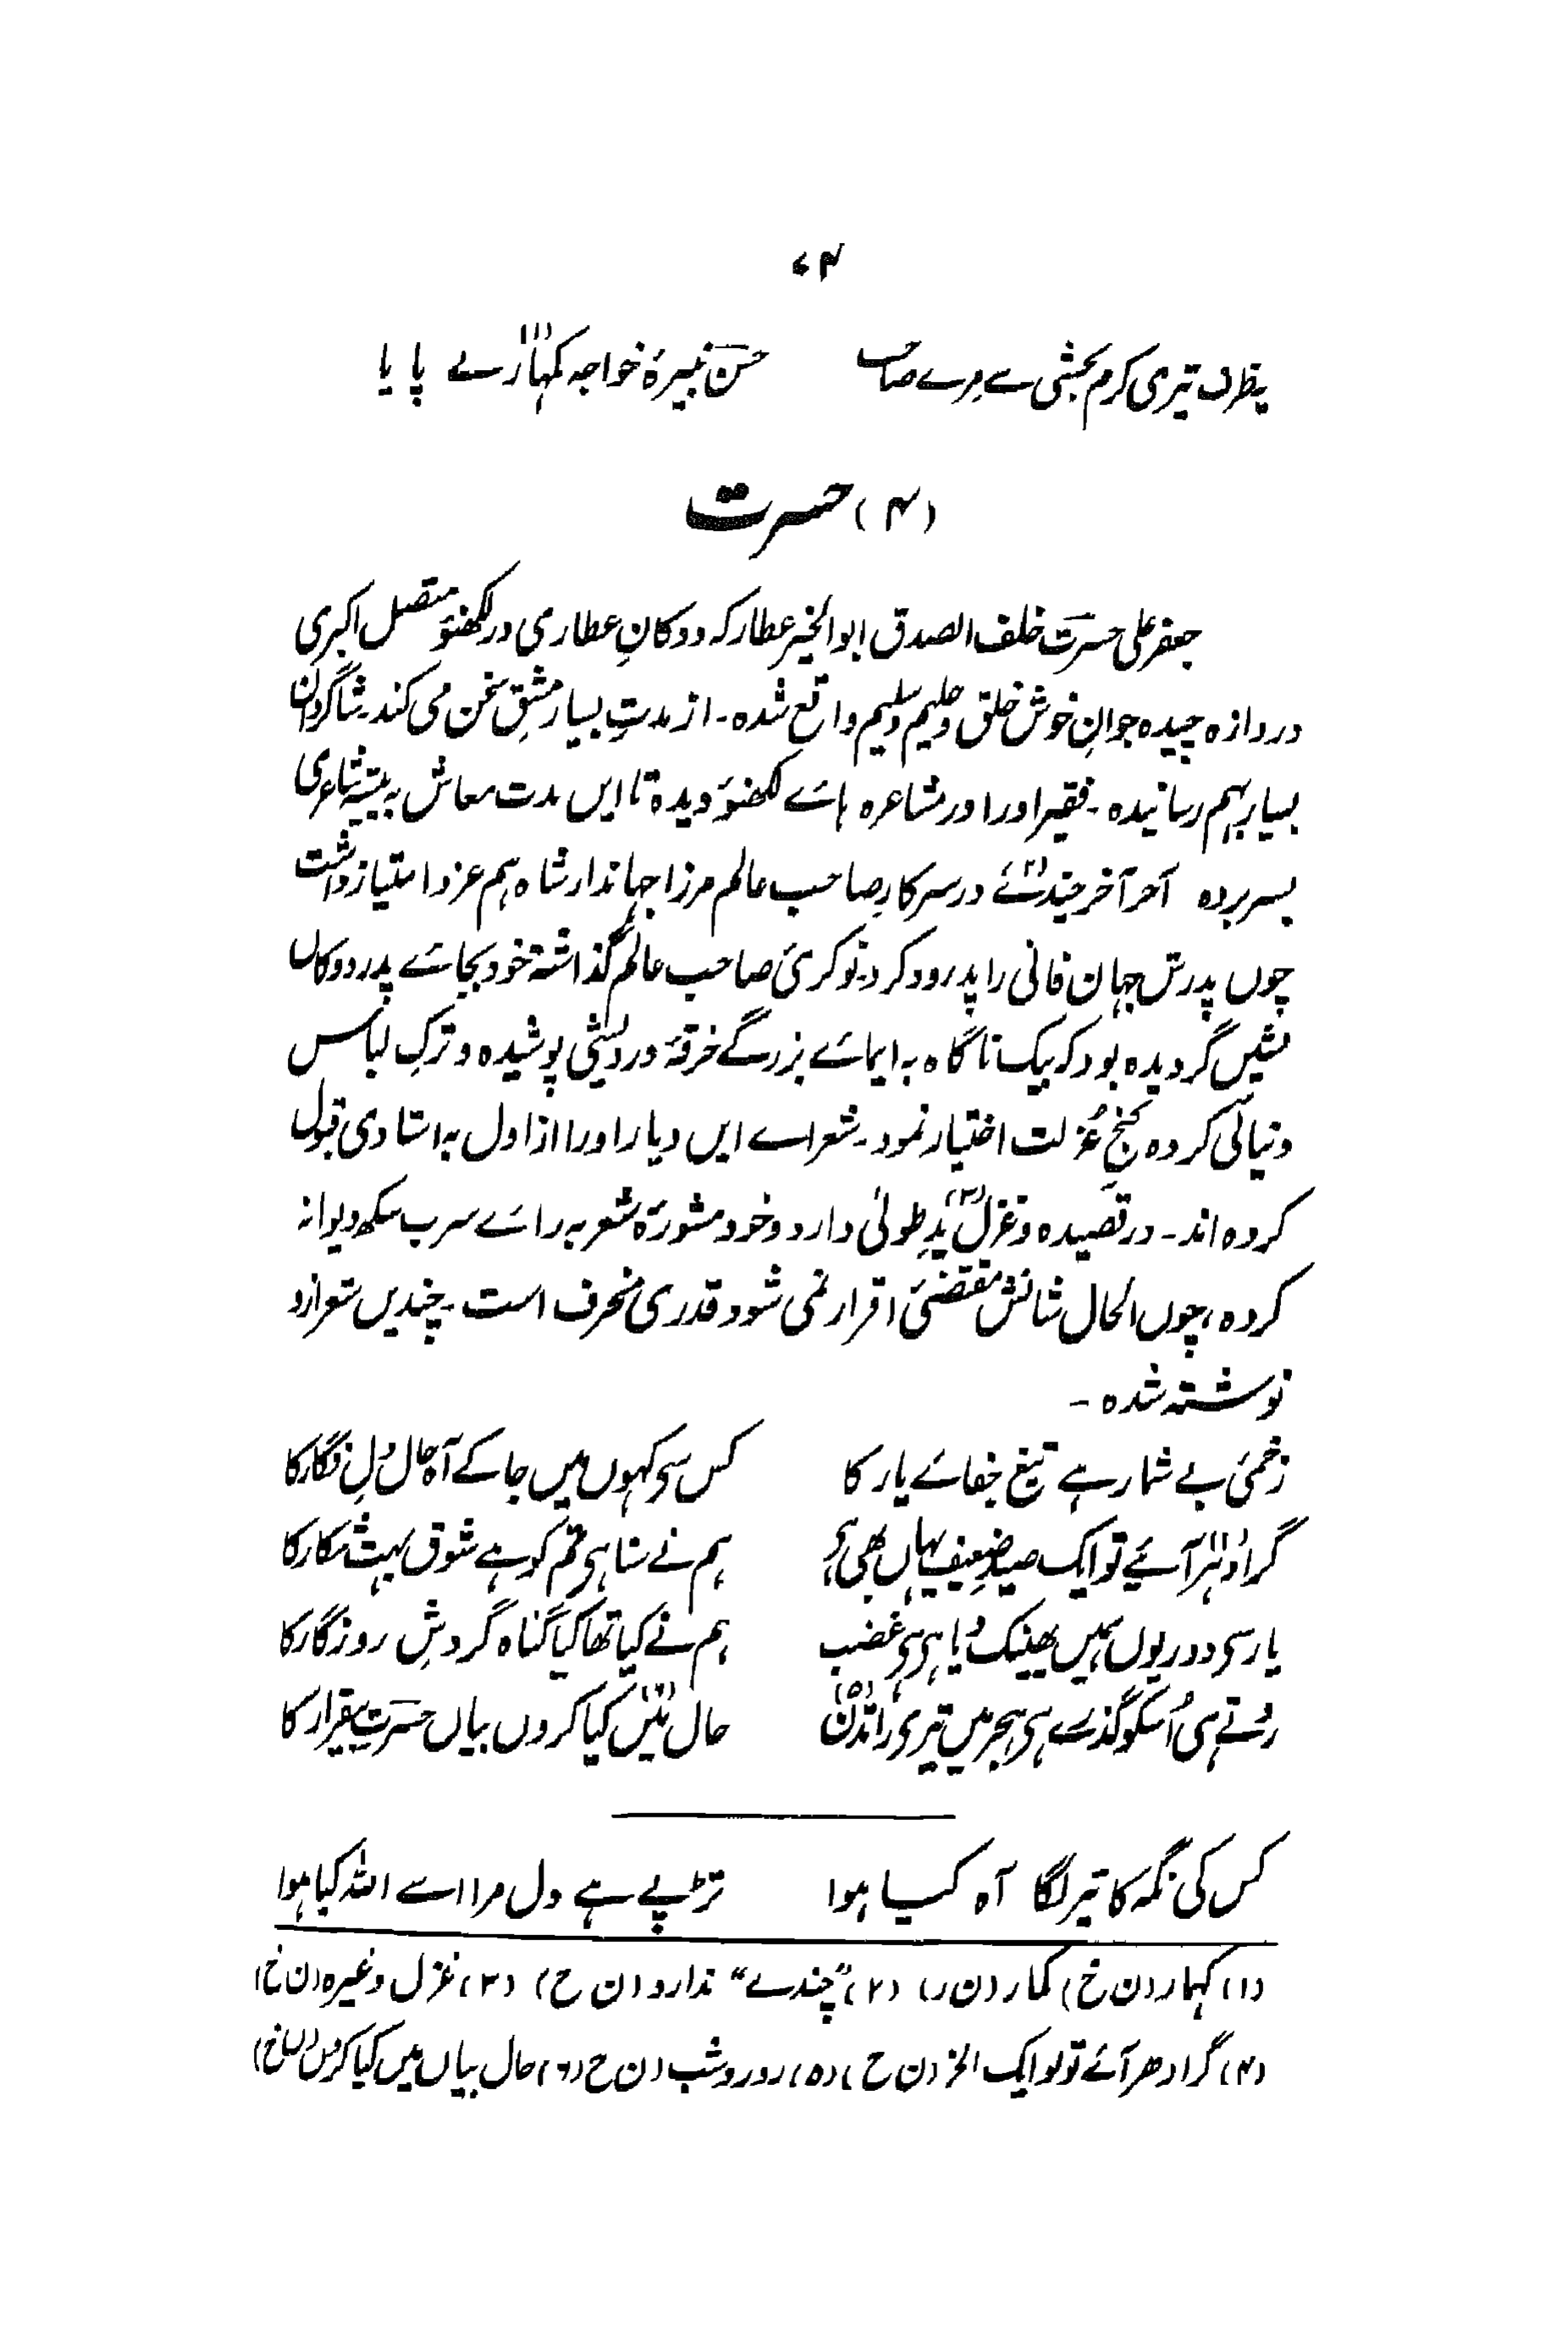 ۷۴
یہ طرف تیری کرم بخشی سے مرے صاحب حسنؔ نبیرۂ خواجہ کمہار(۱) نے پایا
(۴) حسرت
جعفر علی حسرتؔ خلف الصدق ابوالخیر عطار کہ دوکانِ عطاری در لکھنؤ متصل اکبری
دروازہ چیدہ جوانِ خوش خلق و حلیم و سلیم واقع شدہ۔ از مدتِ بسیار مشقِ سخن می کند۔ شاگردان
بسیار بہم رسانیدہ۔ فقیر اورا در مشاعرہ ہائے لکھنؤ دیدہ تا ایں مدت معاش بہ پیشۂ شاعری
بسر بردہ آخر آخر چندے(۲) در سرکارِ صاحب عالم مرزا جہاندار شاہ ہم عز و امتیاز داشت
چوں پدرش جہان فانی را پدرود کرد۔ نوکریٔ صاحب عالم گذاشتہ خود بجائے پدر دوکاں
نشیں گردیدہ بود کہ یک ناگاہ بہ ایمائے بزرگے خرقۂ درویشی پوشیدہ و ترکِ لباس
دنیائی کردہ کنجِ عُزلت اختیار نمود۔ شعراے ایں دیار اورا از اول بہ استادی قبول
کردہ اند۔ در قصیدہ و غزل(۳) یدِ طولیٰ دارد و خود مشورۂ شعر بہ رائے سرب سکھ دیوانہ
کردہ، چوں الحال شانش مقتضیٔ اقرار نمی شود قدری منحرف است۔ چندیں شعر ازو
نوشتہ شدہ۔
زخمیٔ بے شمار ہے تیغ جفائے یار کا کس سی کہوں میں جا کے آہ حال دلِ فگار کا
گر اودہر(۴) آئیے تو ایک صیدِ ضعیف یہاں بھی ہی ہم نے سنا ہی تم کو ہے شوق بہت شکار کا
یار سی دور یوں ہمیں پھینک دیا ہی ہی غضب ہم نے کیا تھا کیا گناہ گردشِ روزگار کا
روتے ہی اُسکو گذرے ہی ہجر میں تیری رات دن(۵) حال میں(۶) کیا کروں بیاں حسرتِ بیقرار کا
کس کی نگہ کا تیر لگا آہ کیا ہوا تڑپے ہے دل مرا اے اللہ کیا ہوا
(۱) کہمار (ن خ) کمار (ن ر) (۲) "چندے" ندارد (ن ح) (۳) غزل وغیرہ (ن خ)
(۴) گر ادھر آئے تو لو ایک الخ (ن ح) (۵) روز و شب (ن ح) (۶) حال بیاں میں کیا کروں (ن خ)